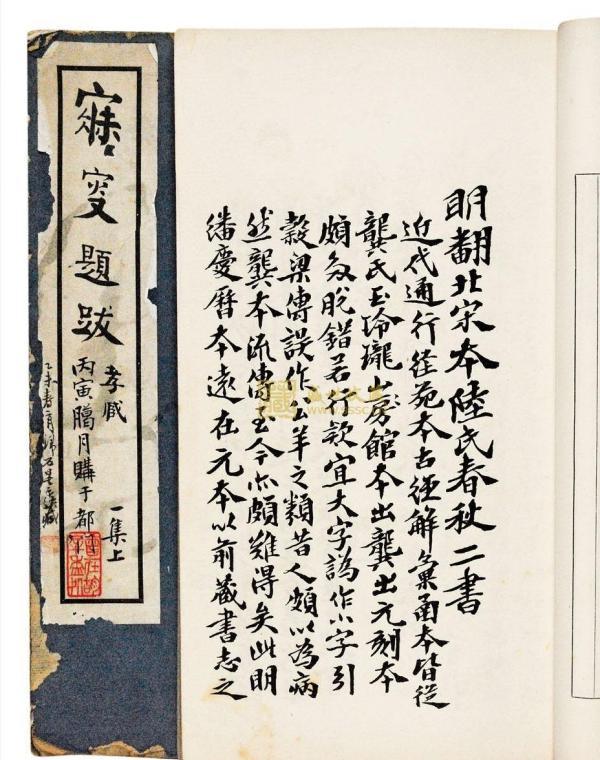 明翻北宋本陸氏春秋二書
近代通行經苑本古經解彙函本皆從
龔氏玉玲瓏山房館本出龔出元刻本
頗多脫錯若行款宜大字譌作小字引
穀梁傳誤作公羊之類昔人頗以為病
然龔本流傳至今亦頗難得矣此明
繙慶曆本遠在元本以前藏書志之
寐叟題跋
一集上
孝臧
丙寅臘月購于都
乙未春